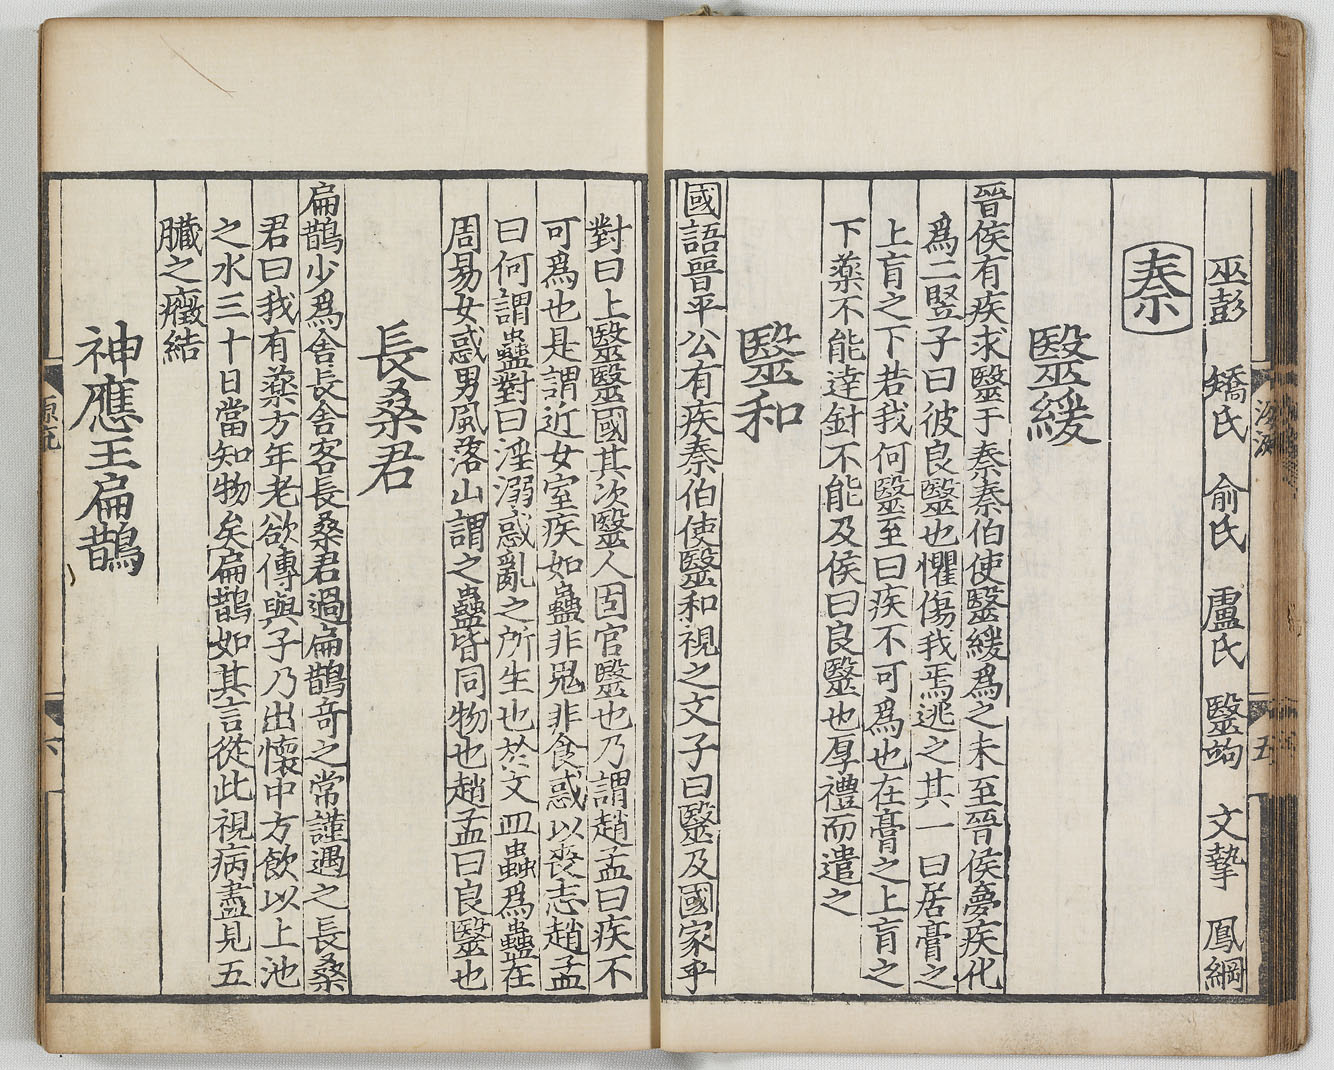 巫彭 矯氏 俞氏 盧氏 毉蚼 文摯 鳳綱
秦
毉緩
晉侯有疾求毉于秦秦伯使毉緩爲之未至晉侯夢疾化
爲二竪子曰彼良毉也懼傷我焉逃之其一曰居膏之
上肓之下若我何毉至曰疾不可爲也在膏之上肓之
下藥不能達針不能及侯曰良毉也厚禮而遣之
毉和
國語晉平公有疾秦伯使毉和視之文子曰毉及國家乎
對曰上毉毉國其次毉人固官毉也乃謂趙孟曰疾不
可爲也是謂近女室疾如蠱非鬼非食惑以喪志趙孟
曰何謂蠱對曰淫溺惑亂之所生也於文皿蟲爲蠱在
周昜女惑男風落山謂之蠱皆同物也趙孟曰良毉也
長桑君
扁鵲少爲舍長舍客長桑君過扁鵲竒之常謹遇之長桑
君曰我有藥方年老欲傳與子乃出懷中方飲以上池
之水三十日當知物矣扁鵲如其言從此視病盡見五
臟之癥結
神應王扁鵲
五
源流
六